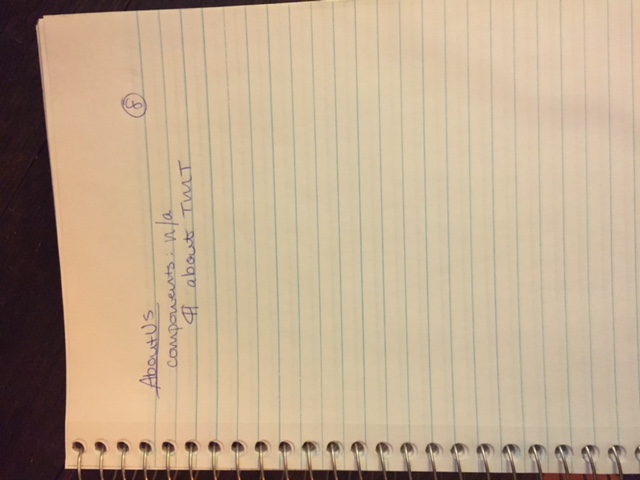 About Us
⑧
components: n/a
¶ about TMT